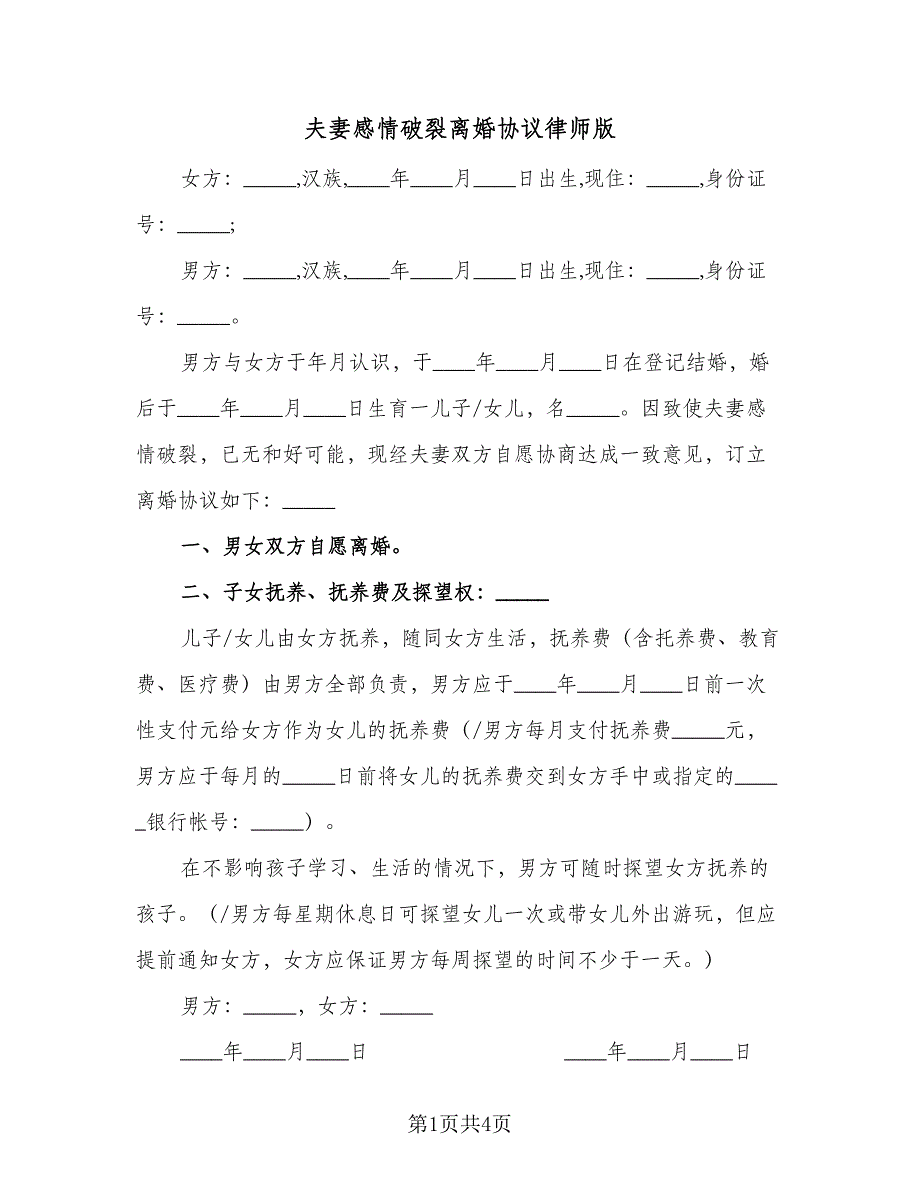 夫妻感情破裂离婚协议律师版
女方：_____,汉族,____年____月____日出生,现住：_____,身份证
号：_____;
男方：_____,汉族,____年____月____日出生,现住：_____,身份证
号：_____。
男方与女方于年月认识，于____年____月____日在登记结婚，婚
后于____年____月____日生育一儿子/女儿，名_____。因致使夫妻感
情破裂，已无和好可能，现经夫妻双方自愿协商达成一致意见，订立
离婚协议如下：_____
一、男女双方自愿离婚。
二、子女抚养、抚养费及探望权：_____
儿子/女儿由女方抚养，随同女方生活，抚养费（含托养费、教育
费、医疗费）由男方全部负责，男方应于____年____月____日前一次
性支付元给女方作为女儿的抚养费（/男方每月支付抚养费_____元，
男方应于每月的_____日前将女儿的抚养费交到女方手中或指定的____
_银行帐号：_____）。
在不影响孩子学习、生活的情况下，男方可随时探望女方抚养的
孩子。（/男方每星期休息日可探望女儿一次或带女儿外出游玩，但应
提前通知女方，女方应保证男方每周探望的时间不少于一天。）
男方：_____，女方：_____
____年____月____日 ____年____月____日
第1页共4页